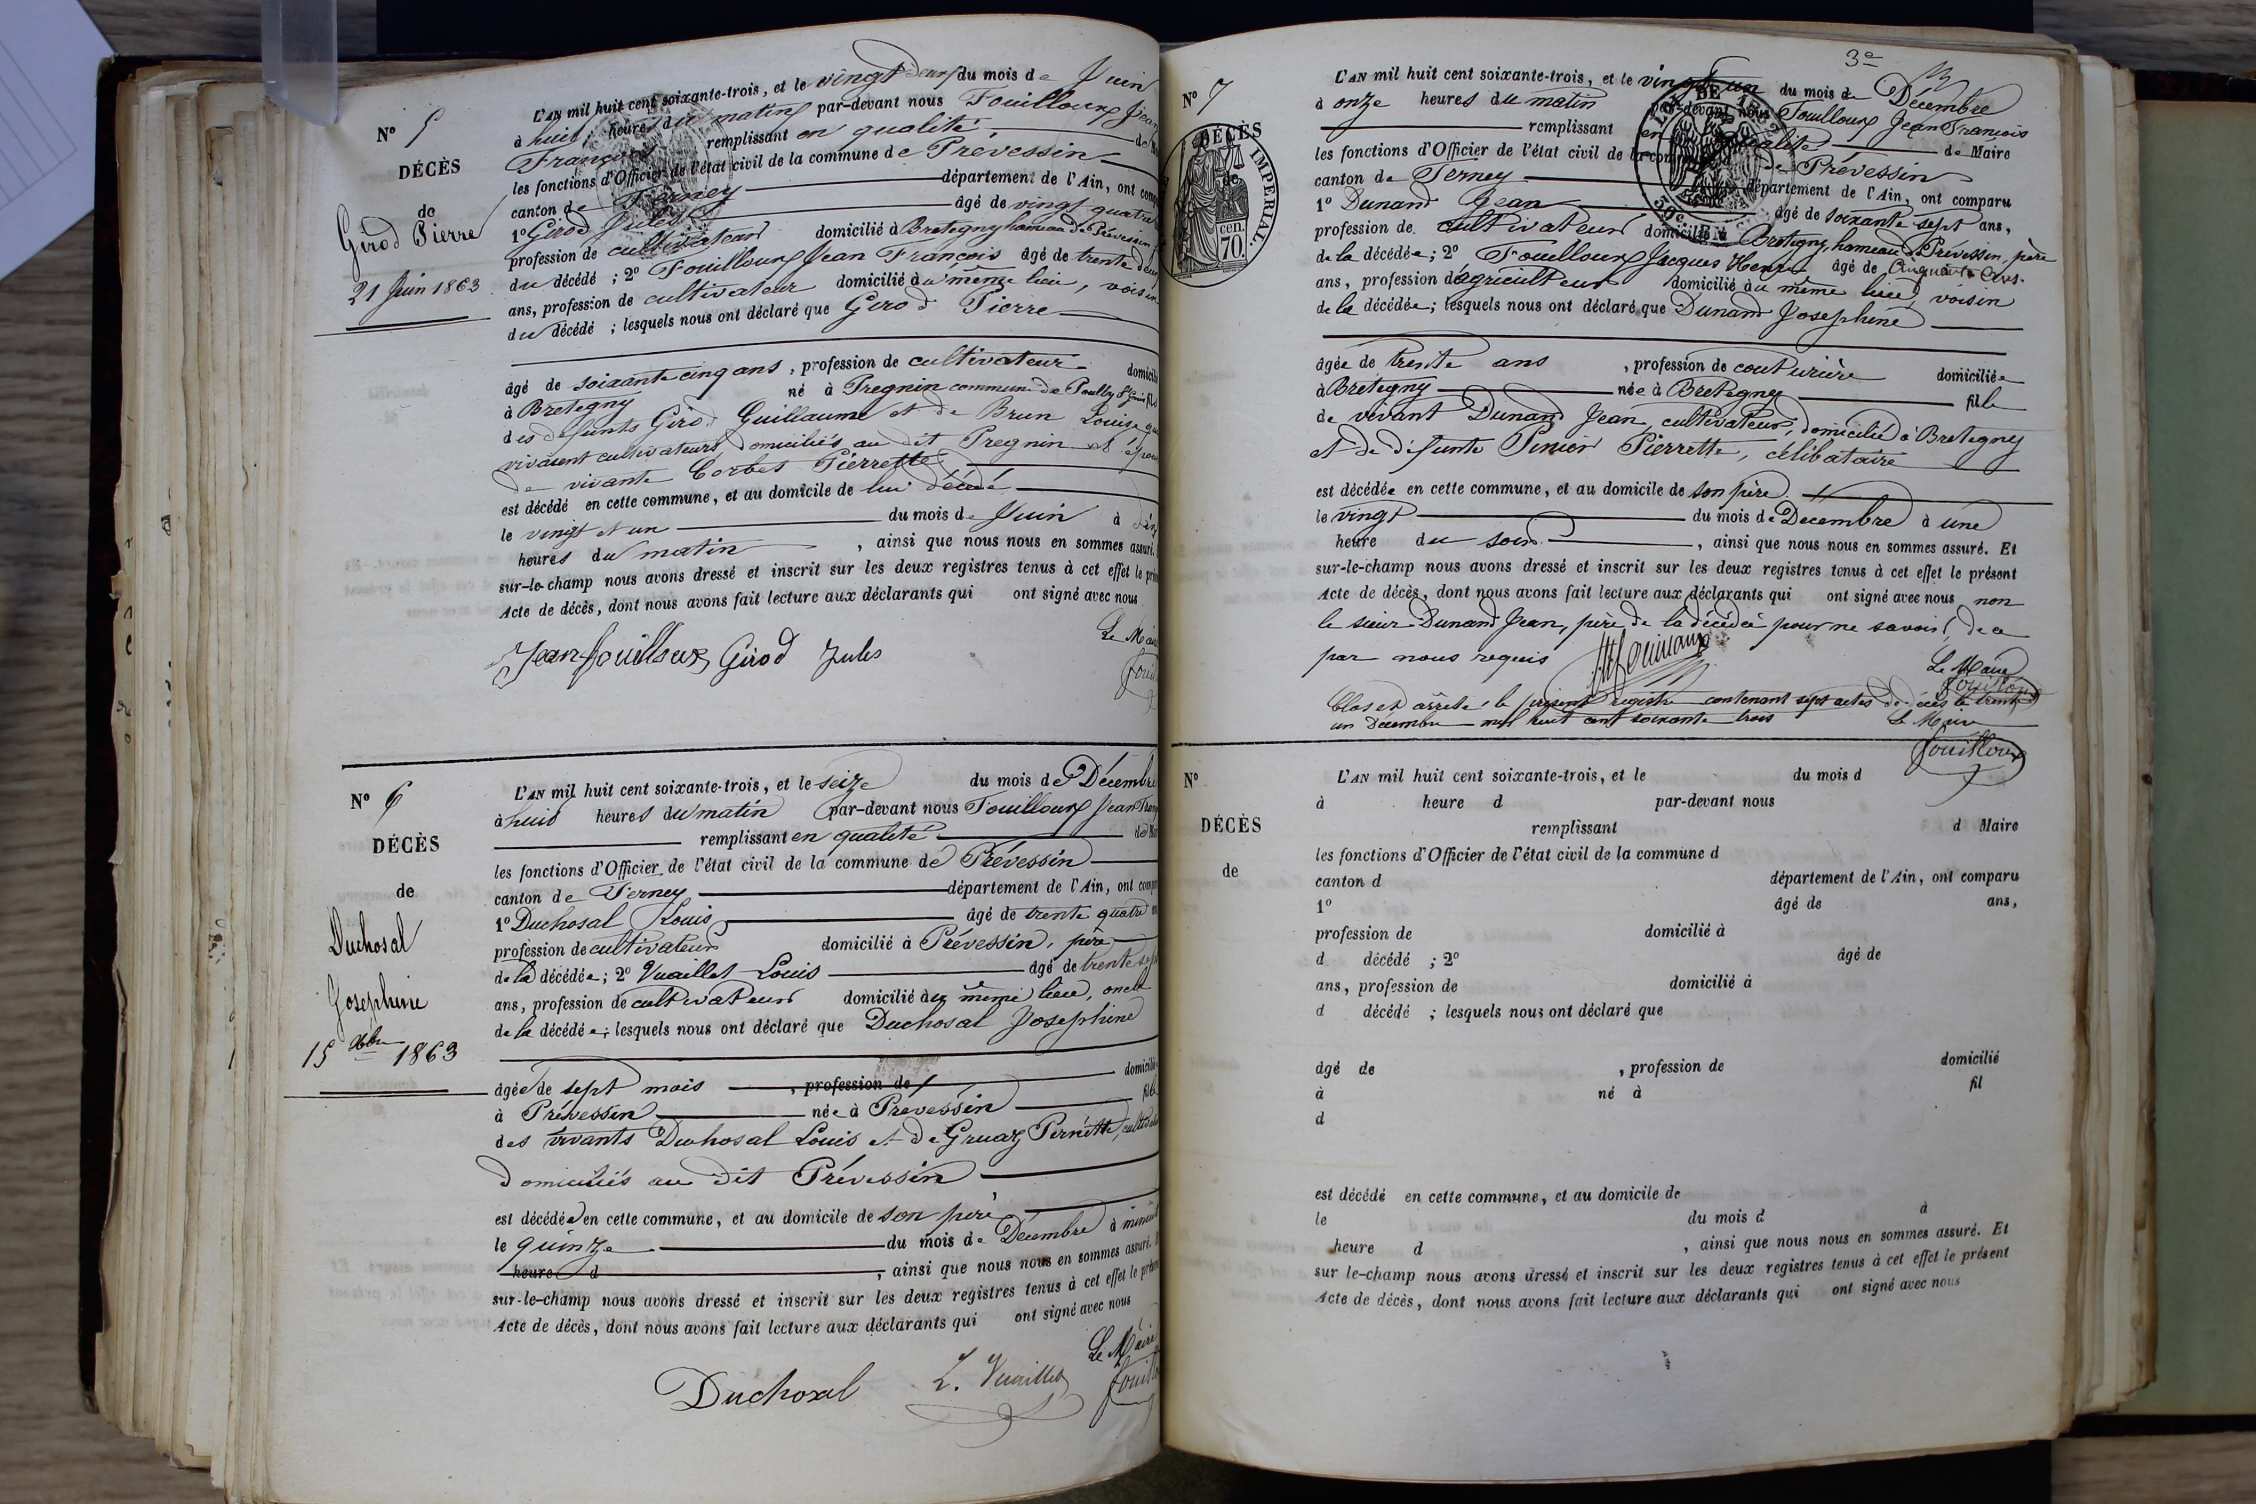 N° 5
DÉCÈS
de
Girod Pierre
21 Juin 1863
L'AN mil huit cent soixante-trois, et le vingt deux du mois de Juin
à huit heures du matin par-devant nous Fouilloux Jean
François remplissant en qualité de
les fonctions d'Officier de l'état civil de la commune de Prévessin
canton de Ferney département de l'Ain, ont
1° Girod Jules âgé de vingt quatre
profession de cultivateur domicilié à Bretegny hameau de Prévessin
du décédé ; 2° Fouilloux Jean François âgé de trente deux
ans, profession de cultivateur domicilié au même lieu, voisin
du décédé ; lesquels nous ont déclaré que Girod Pierre
âgé de soixante cinq ans, profession de cultivateur domicilié
à Bretegny né à Pregnin commune de Pouilly St Genis fils
des défunts Girod Guillaume et de Brun Louise
vivaient cultivateurs domiciliés au dit Pregnin et époux
de vivante Corbet Pierrette
est décédé en cette commune, et au domicile de lui décédé
le vingt et un du mois de Juin à
heures du matin, ainsi que nous nous en sommes assuré.
sur-le-champ nous avons dressé et inscrit sur les deux registres tenus à cet effet le
Acte de décès, dont nous avons fait lecture aux déclarants qui ont signé avec nous
Le Maire
Jean fouilloux Girod Jules
N° 6
DÉCÈS
de
Duchosal
Josephine
15 Xbre 1863
L'AN mil huit cent soixante-trois, et le seize du mois de Décembre
à huit heures du matin par-devant nous Fouilloux Jean
remplissant en qualité de
les fonctions d'Officier de l'état civil de la commune de Prévessin
canton de Ferney département de l'Ain, ont
1° Duchosal Louis âgé de trente quatre
profession de cultivateur domicilié à Prévessin, père
de la décédée ; 2° Vuaillet Louis âgé de trente sept
ans, profession de cultivateur domicilié au même lieu, oncle
de la décédée ; lesquels nous ont déclaré que Duchosal Josephine
âgée de sept mois, profession de domiciliée
à Prévessin née à Prévessin fille
des vivants Duchosal Louis et de Gruaz Pernette,
domiciliés au dit Prévessin
est décédée en cette commune, et au domicile de son père
le quinze du mois de Décembre à minuit
heure d , ainsi que nous nous en sommes assuré.
sur-le-champ nous avons dressé et inscrit sur les deux registres tenus à cet effet le
Acte de décès, dont nous avons fait lecture aux déclarants qui ont signé avec nous
Le Maire
Duchosal L. Vuaillet
3e
N° 7
DÉCÈS
de
IMPERIAL.
cen.
70.
L'AN mil huit cent soixante-trois, et le vingt un du mois de Décembre
à onze heures du matin par-devant nous Fouilloux Jean François
remplissant en qualité de Maire
les fonctions d'Officier de l'état civil de la commune de Prévessin
canton de Ferney département de l'Ain, ont comparu
1° Dunand Jean âgé de soixante sept ans,
profession de cultivateur domicilié à Bretegny, hameau de Prévessin, père
de la décédée ; 2° Fouilloux Jacques Henri âgé de Cinquante Cinq
ans, profession d'agriculteur domicilié au même lieu, voisin
de la décédée ; lesquels nous ont déclaré que Dunand Josephine
âgée de trente ans, profession de couturière domiciliée
à Bretegny née à Bretegny fille
de vivant Dunand Jean, cultivateur, domicilié à Bretegny
et de défunte Pinier Pierrette, célibataire
est décédée en cette commune, et au domicile de son père
le vingt du mois de Décembre à une
heure du soir, ainsi que nous nous en sommes assuré. Et
sur-le-champ nous avons dressé et inscrit sur les deux registres tenus à cet effet le présent
Acte de décès, dont nous avons fait lecture aux déclarants qui ont signé avec nous non
le sieur Dunand Jean, père de la décédée pour ne savoir, de ce
par nous requis
Le Maire
Fouilloux
Clos et arrêté le présent registre contenant sept actes de décès le trente
un Décembre mil huit cent soixante trois Le Maire
Fouilloux
N°
DÉCÈS
de
L'AN mil huit cent soixante-trois, et le du mois d
à heure d par-devant nous
remplissant d Maire
les fonctions d'Officier de l'état civil de la commune d
canton d département de l'Ain, ont comparu
1° âgé de ans,
profession de domicilié à
d décédé ; 2° âgé de
ans, profession de domicilié à
d décédé ; lesquels nous ont déclaré que
âgé de , profession de domicilié
à né à fil
d
est décédé en cette commune, et au domicile de
le du mois d à
heure d , ainsi que nous nous en sommes assuré. Et
sur le-champ nous avons dressé et inscrit sur les deux registres tenus à cet effet le présent
Acte de décès, dont nous avons fait lecture aux déclarants qui ont signé avec nous